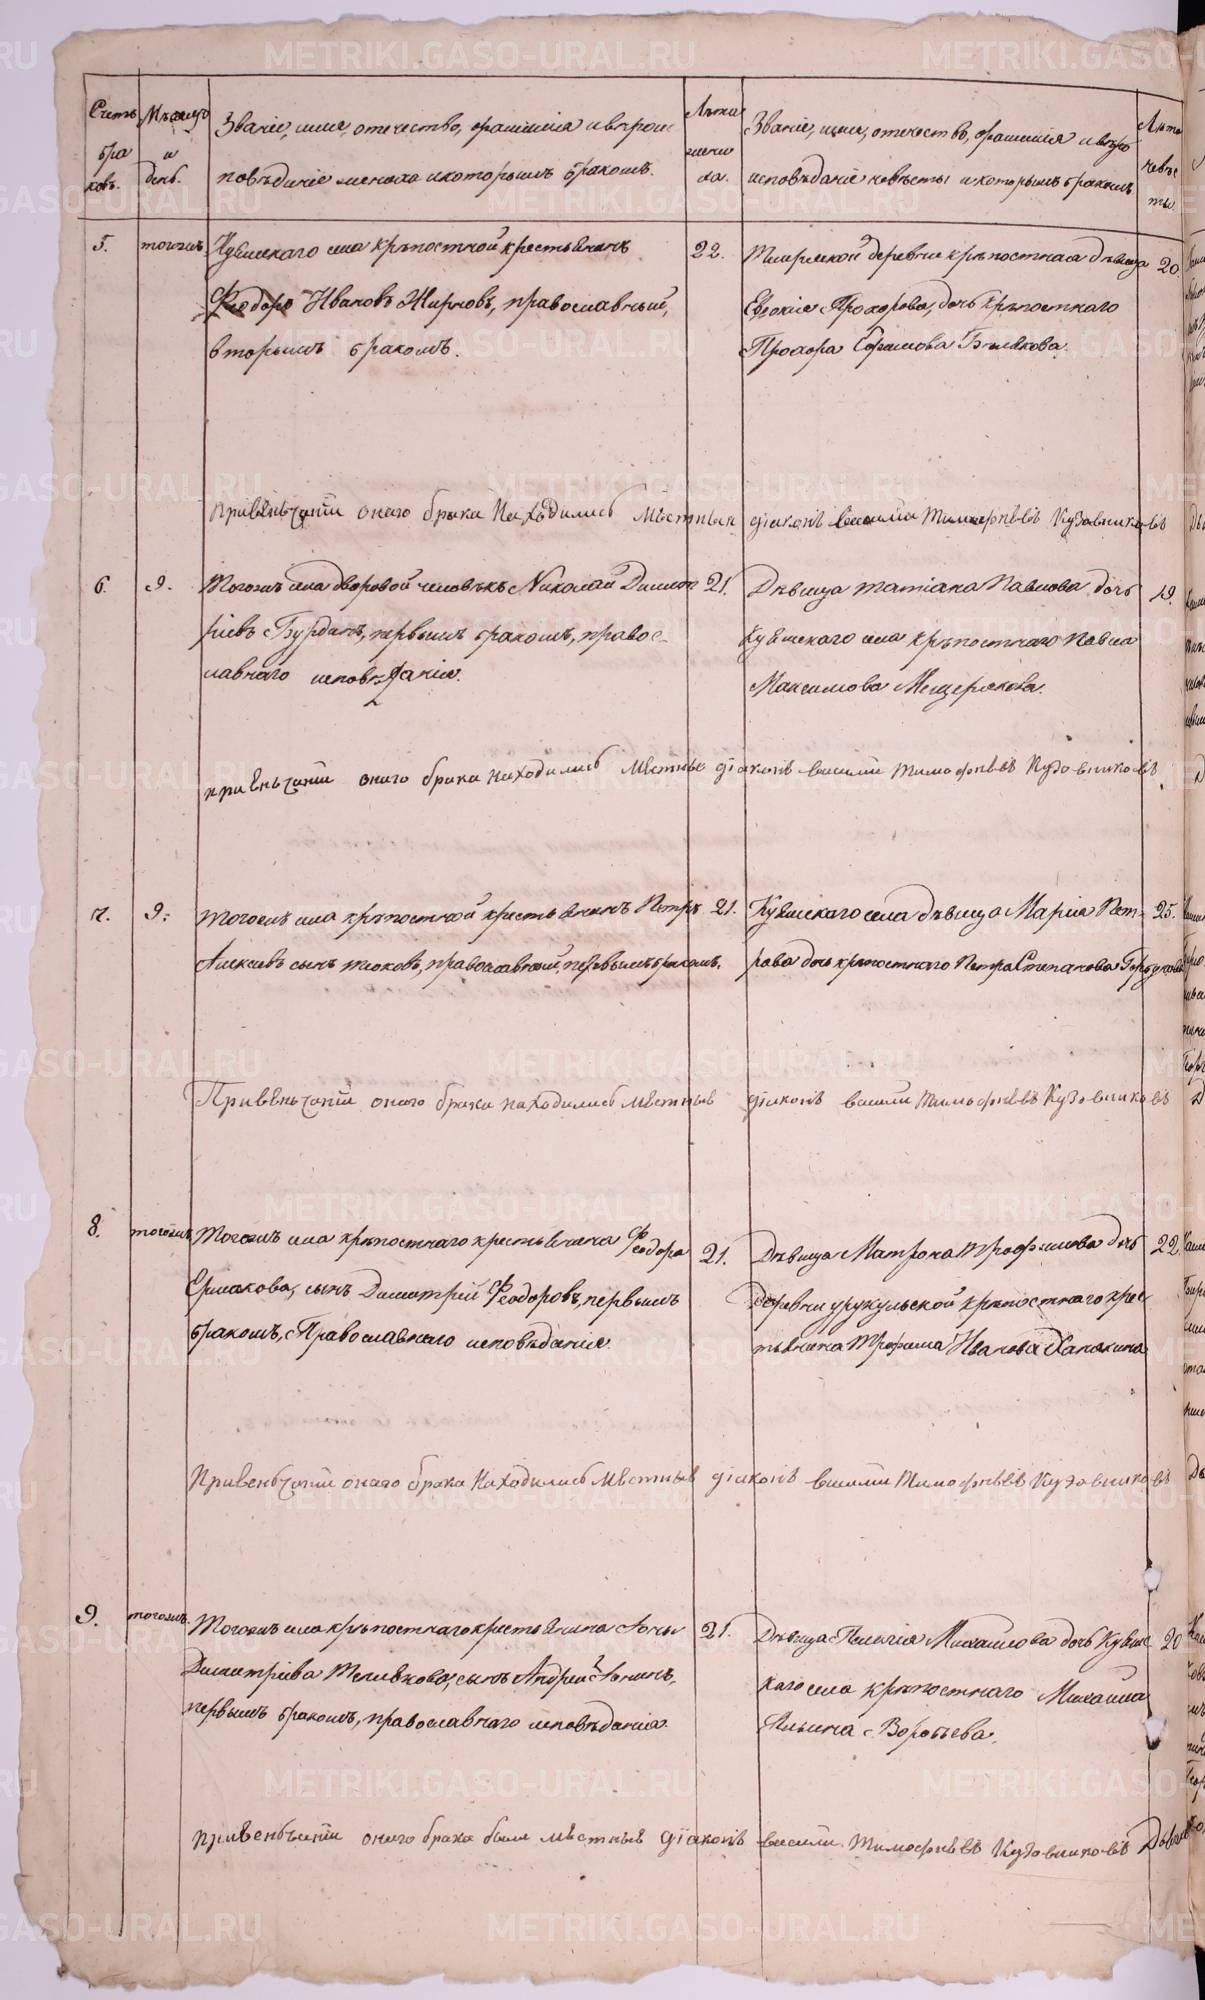 Счетъ браковъ.
Мѣсяцъ и день.
Званіе, имя, отечество, фамилія и вѣроисповѣданіе жениха и которымъ бракомъ.
Лѣта жениха.
Званіе, имя, отечество, фамилія и вѣроисповѣданіе невѣсты и которымъ бракомъ
Лѣта невѣсты
5.
тогожъ
села крѣпостной крестьянинъ
Феодоръ Ивановъ Жирновъ, православный,
вторымъ бракомъ.
22.
деревни крѣпостная дѣвица
Евдокія Прохорова, дочь крѣпостнаго
Прохора Ефимова Бѣлякова.
20
привѣнчаніи онаго брака находились мѣстныи діаконъ василіи тимофѣевъ Кузовниковъ
6.
9.
Тогожъ села дворовой человѣкъ Николай Димит
ріевъ Бурдинъ, первымъ бракомъ, правос-
лавнаго исповѣданія.
21.
Дѣвица Татіана Павлова, дочь
Куяшскаго села крѣпостнаго Павла
Максимова Мещерякова.
19.
привѣнчаніи онаго брака находились мѣстные діаконъ василіи тимофѣевъ Кузовниковъ
7.
9.
Тогожъ села крѣпостной крестьянинъ Петръ
Алексѣевъ сынъ православный, первымъ бракомъ.
21.
Куяшскаго села дѣвица Марія Пет-
рова дочь крѣпостнаго Петра Степанова
25.
Привѣнчаніи онаго брака находились мѣстные діаконъ василіи тимофѣевъ Кузовниковъ
8.
тогожъ
Тогожъ села крѣпостнаго крестьянина Феодора
Ермакова, сынъ Димитрій Феодоровъ, первымъ
бракомъ, Православнаго исповѣданія.
21.
Дѣвица Матрона Трофимова дочь
Деревни урукульской крѣпостнаго крес-
тьянина Трофима Иванова Ханжина
22
Привенчаніи онаго брака находились мѣстные діаконъ василіи тимофѣевъ Кузовниковъ
9.
тогожъ.
Тогожъ села крѣпостнаго крестьянина Іоны
Димитріева сынъ Андрей Іонинъ,
первымъ бракомъ, православнаго исповѣданія.
21.
Дѣвица Пелагія Михайлова дочь Куяшс
каго села крѣпостнаго Михаила
Ильина Воробьева.
20
привенчаніи онаго брака были мѣстные діаконъ василіи тимофѣевъ Кузовниковъ
METRIKI.GASO-URAL.RU